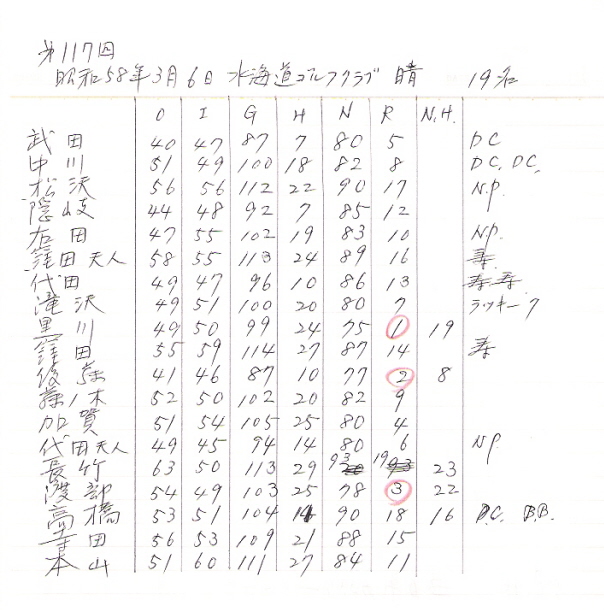 第117回
昭和58年3月6日 水海道ゴルフクラブ 晴 19名
O I G H N R N.H.
武田 40 47 87 7 80 5 DC
中川 51 49 100 18 82 8 DC. DC.
松沢 56 56 112 22 90 17 N.P.
隠岐 44 48 92 7 85 12
石田 47 55 102 19 83 10 N.P.
窪田夫人 58 55 113 24 89 16 寿
代田 49 47 96 10 86 13 寿 寿
滝沢 49 51 100 20 80 7 ラッキー7
黒川 49 50 99 24 75 1 19
窪田 55 59 114 27 87 14 寿
後藤 41 46 87 10 77 2 8
藤ノ木 52 50 102 20 82 9
加賀 51 54 105 25 80 4
代田夫人 49 45 94 14 80 6 NP
長竹 63 50 113 29 93 19 23
渡部 54 49 103 25 78 3 22
高橋 53 51 104 14 90 18 16 D.C. B.B.
田 56 53 109 21 88 15
本山 51 60 111 27 84 11